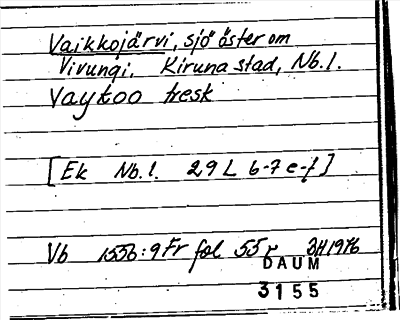 Vaikkojärvi, sjö öster om
Vivungi. Kiruna stad, Nb.l.
Vaytoo tresk
[Ek Nb.l. 29 L 6-7 e-f]
Vb 1556:9 Fr fol 55 r BH 1976
DAUM
3155